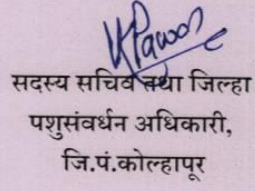 सदस्य सचिव तथा जिल्हा
पशुसंवर्धन अधिकारी,
जि.प.कोल्हापूर